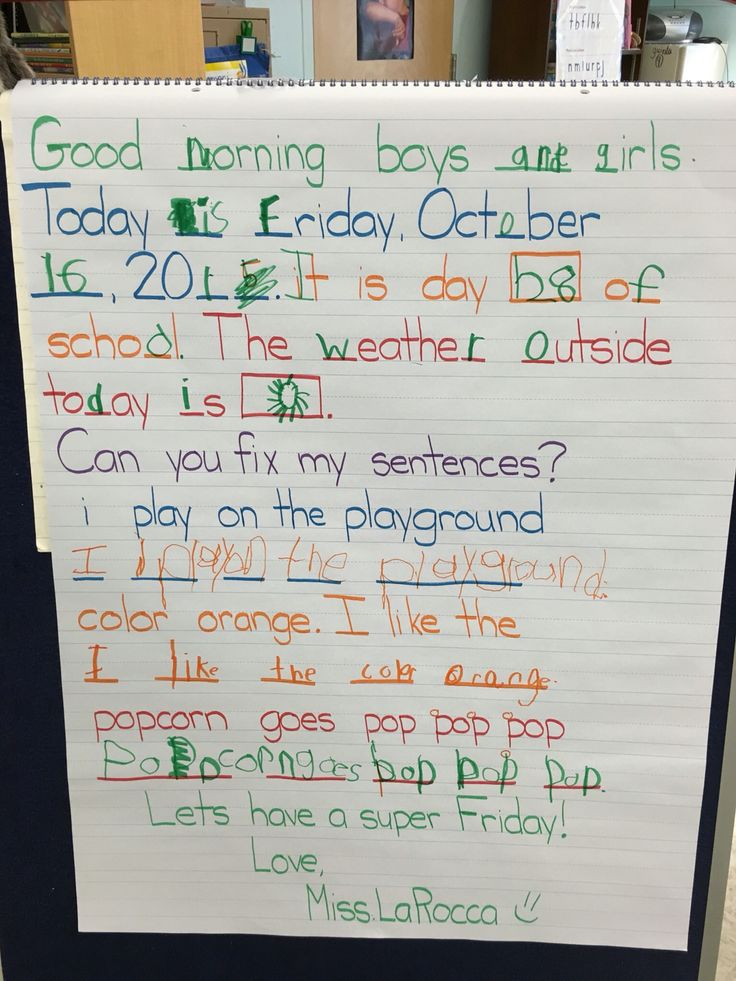 tbflhk
nmlurpj
Good morning boys and girls.
Today is Friday, October
16, 2015. It is day 28 of
school. The weather outside
today is
Can you fix my sentences?
i play on the playground
I play on the playground.
color orange. I like the
I like the color orange.
popcorn goes pop pop pop
Popcorn goes pop pop pop.
Lets have a super Friday!
Love,
Miss. LaRocca